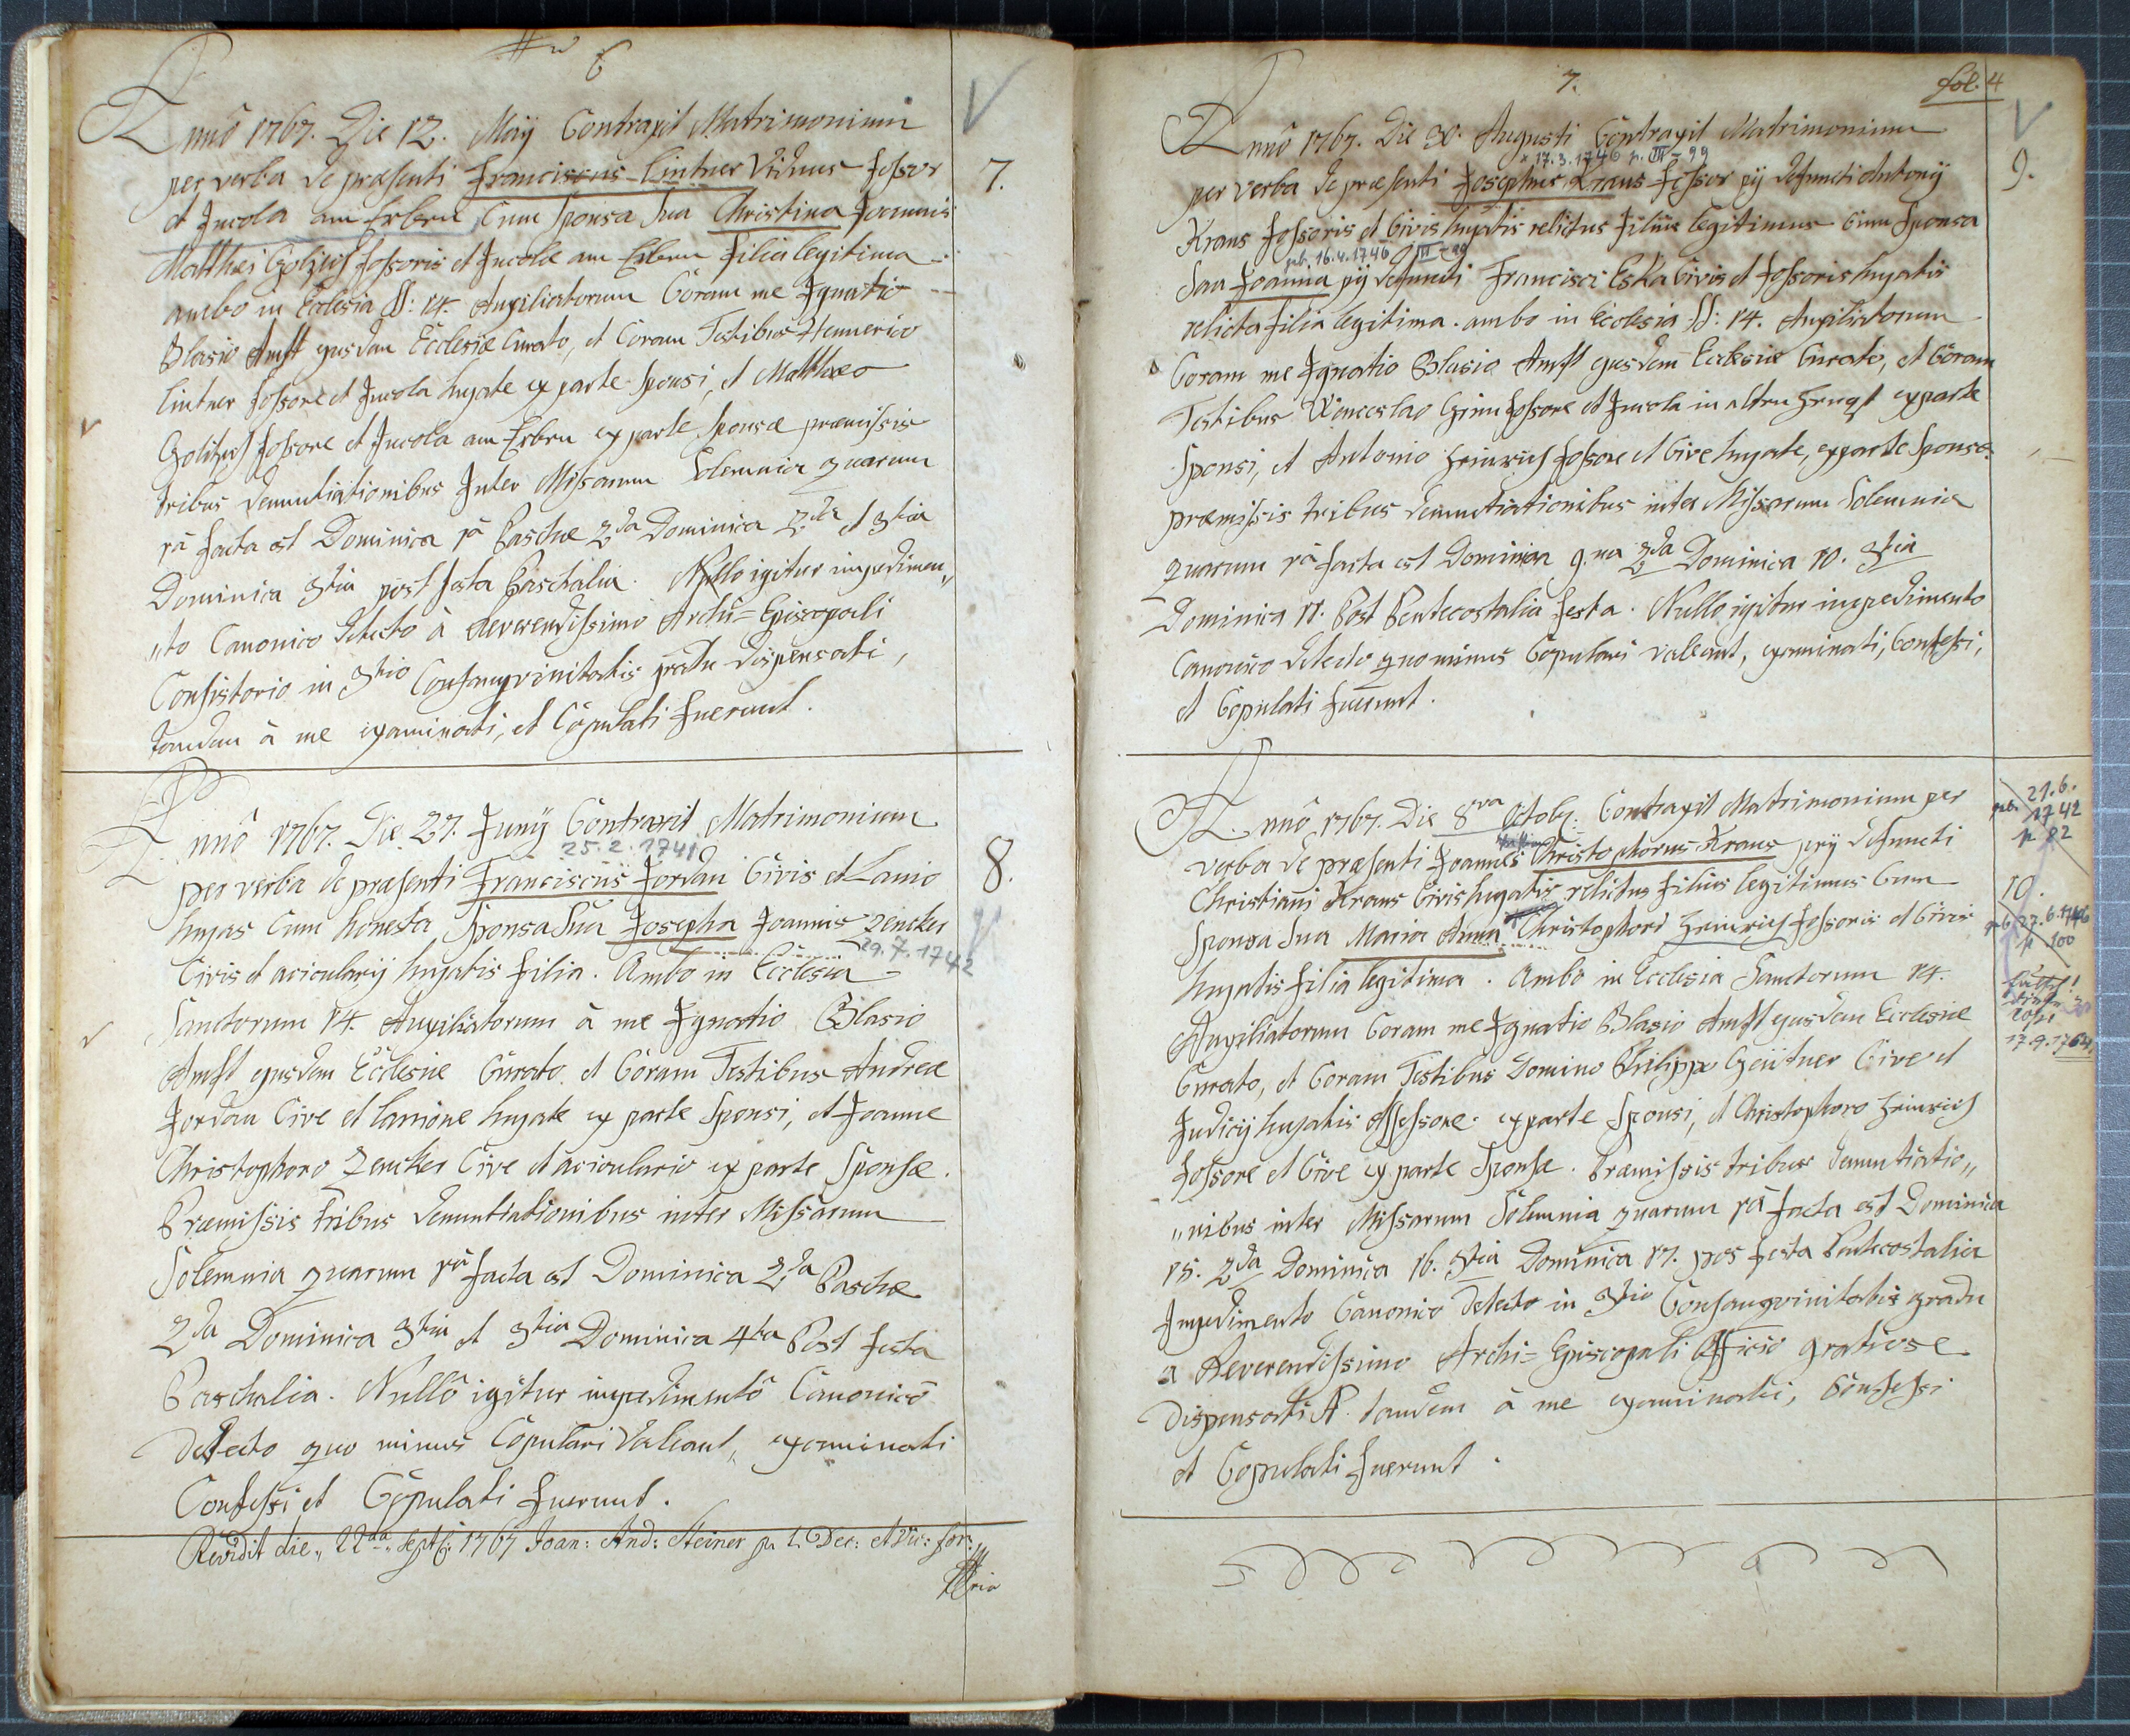 6
Annô 1767. Die 12. Maÿ Contraxit Matrimonium
per verba de præsenti Franciscus Lintner Viduus Fossor
et Incola am Erbern Cum Sponsa Sua Christina Joannis
7.
Matthæi Fossoris et Incolæ am Erbern Filia legitima
ambo in Ecclesia SS: 14. Auxiliatorum Coram me Ignatio
Blasio Amft ejusdem Ecclesiæ Curato, et Coram Testibus Hennerico
Lintner Fossore et Incola hujate ex parte Sponsi, et Matthæo
Fossore et Incola am Erbern ex parte Sponsæ præmissis
tribus denuntiationibus Inter Missarum Solemnia quarum
1ȧ facta est Dominica 1ȧ Paschæ 2da Dominica 2da et 3tia
Dominica 3tia post festa Paschalia. Nullo igitur impedimen„
„to Canonico detecto à Reverendissimo Archi=Episcopali
Consistorio in 3tio Consangvinitatis gradu dispensati,
tandem à me examinati, et Copulati fuerunt.
Annô 1767. Die 27. Junÿ Contraxit Matrimonium
25.2.1741
per verba de præsenti Franciscus Jordan Civis et Lanio
8.
hujas Cum honesta Sponsa Sua Josepha Joannis Zencker
29.7.1742
Civis et acicularÿ hujatis filia. Ambo in Ecclesia
Sanctorum 14. Auxiliatorum à me Ignatio Blasio
Amft ejusdem Ecclesiæ Curato et Coram Testibus Andrea
Jordan Cive et lanione hujate ex parte Sponsi, et Joanne
Christophoro Zencker Cive et aciculario ex parte Sponsæ.
Præmissis tribus denuntiationibus inter Missarum
Solemnia quarum 1ȧ facta est Dominica 2da Paschæ
2da Dominica 3tia et 3tia Dominica 4ta Post festa
Paschalia. Nullô igitur impedimentô Canonicô
detecto quo minus Copulari Valeant, examinati
Confessi et Copulati fuerunt.
Revidit die 22da Septb: 1767 Joan: And: Steiner p. t. Dec: et Vic: for:
7.
fol. 4
Annô 1767. Die 30. Augusti Contraxit Matrimonium
* 17.3.1746 p. III - 99
per verba de præsenti Josephus Kraus Fossor pÿ defuncti Antonÿ
9.
Kraus Fossoris et Civis hujatis relictus Filius legitimus Cum Sponsa
geb. 16.4.1746 III - 99
Sua Joanna pÿ defuncti Francisci Eska Civis et Fossoris hujatis
relicta filia legitima. ambo in Ecclesia SS: 14. Auxiliatorum
Coram me Ignatio Blasio Amft ejusdem Ecclesiæ Curato, et Coram
Testibus Wenceslao Fossore et Incola in ex parte
Sponsi, et Antonio Heinrich Fossore et Cive hujate, ex parte Sponsæ.
præmissis tribus denuntiationibus inter Missarum Solemnia
quarum 1ȧ facta est Dominica 9.na 2da Dominica 10. 3tia
Dominica 11. Post Pentecostalia festa. Nullo igitur impedimento
Canonico detecto quominus Copulari valeant, examinati, Confessi,
et Copulati fuerunt.
Annô 1767. Die 8va Octobr: Contraxit Matrimonium per
geb. 21.6. 1742
p 82
verba de præsenti Joannes Christophorus Kraus pÿ defuncti
Christiani Kraus Civis hujatis relictus filius legitimus Cum
10.
Sponsa Sua Maria Anna Christophori Heinrich Fossoris et Civis
geb 27.6.1746
p 100
hujatis filia legitima. Ambo in Ecclesia Sanctorum 14.
Auxiliatorum Coram me Ignatio Blasio Amft ejusdem Ecclesiæ
17.9.1764
Curato, et Coram Testibus Domino Philippo Cive et
Judicÿ hujatis Assessore ex parte Sponsi, et Christophoro Heinrich
Fossore et Cive ex parte Sponsæ. Præmissis tribus denuntiatio„
„nibus inter Missarum Solemnia quarum 1ȧ facta est Dominica
15. 2da Dominica 16. 3tia Dominica 17. pos festa Pentecostalia
Impedimento Canonico detecto in 3tio Consangvinitatis gradu
a Reverendissimo Archi=Episcopali Officio gratiose
Dispensati tandem à me examinati, Confessi
et Copulati fuerunt.